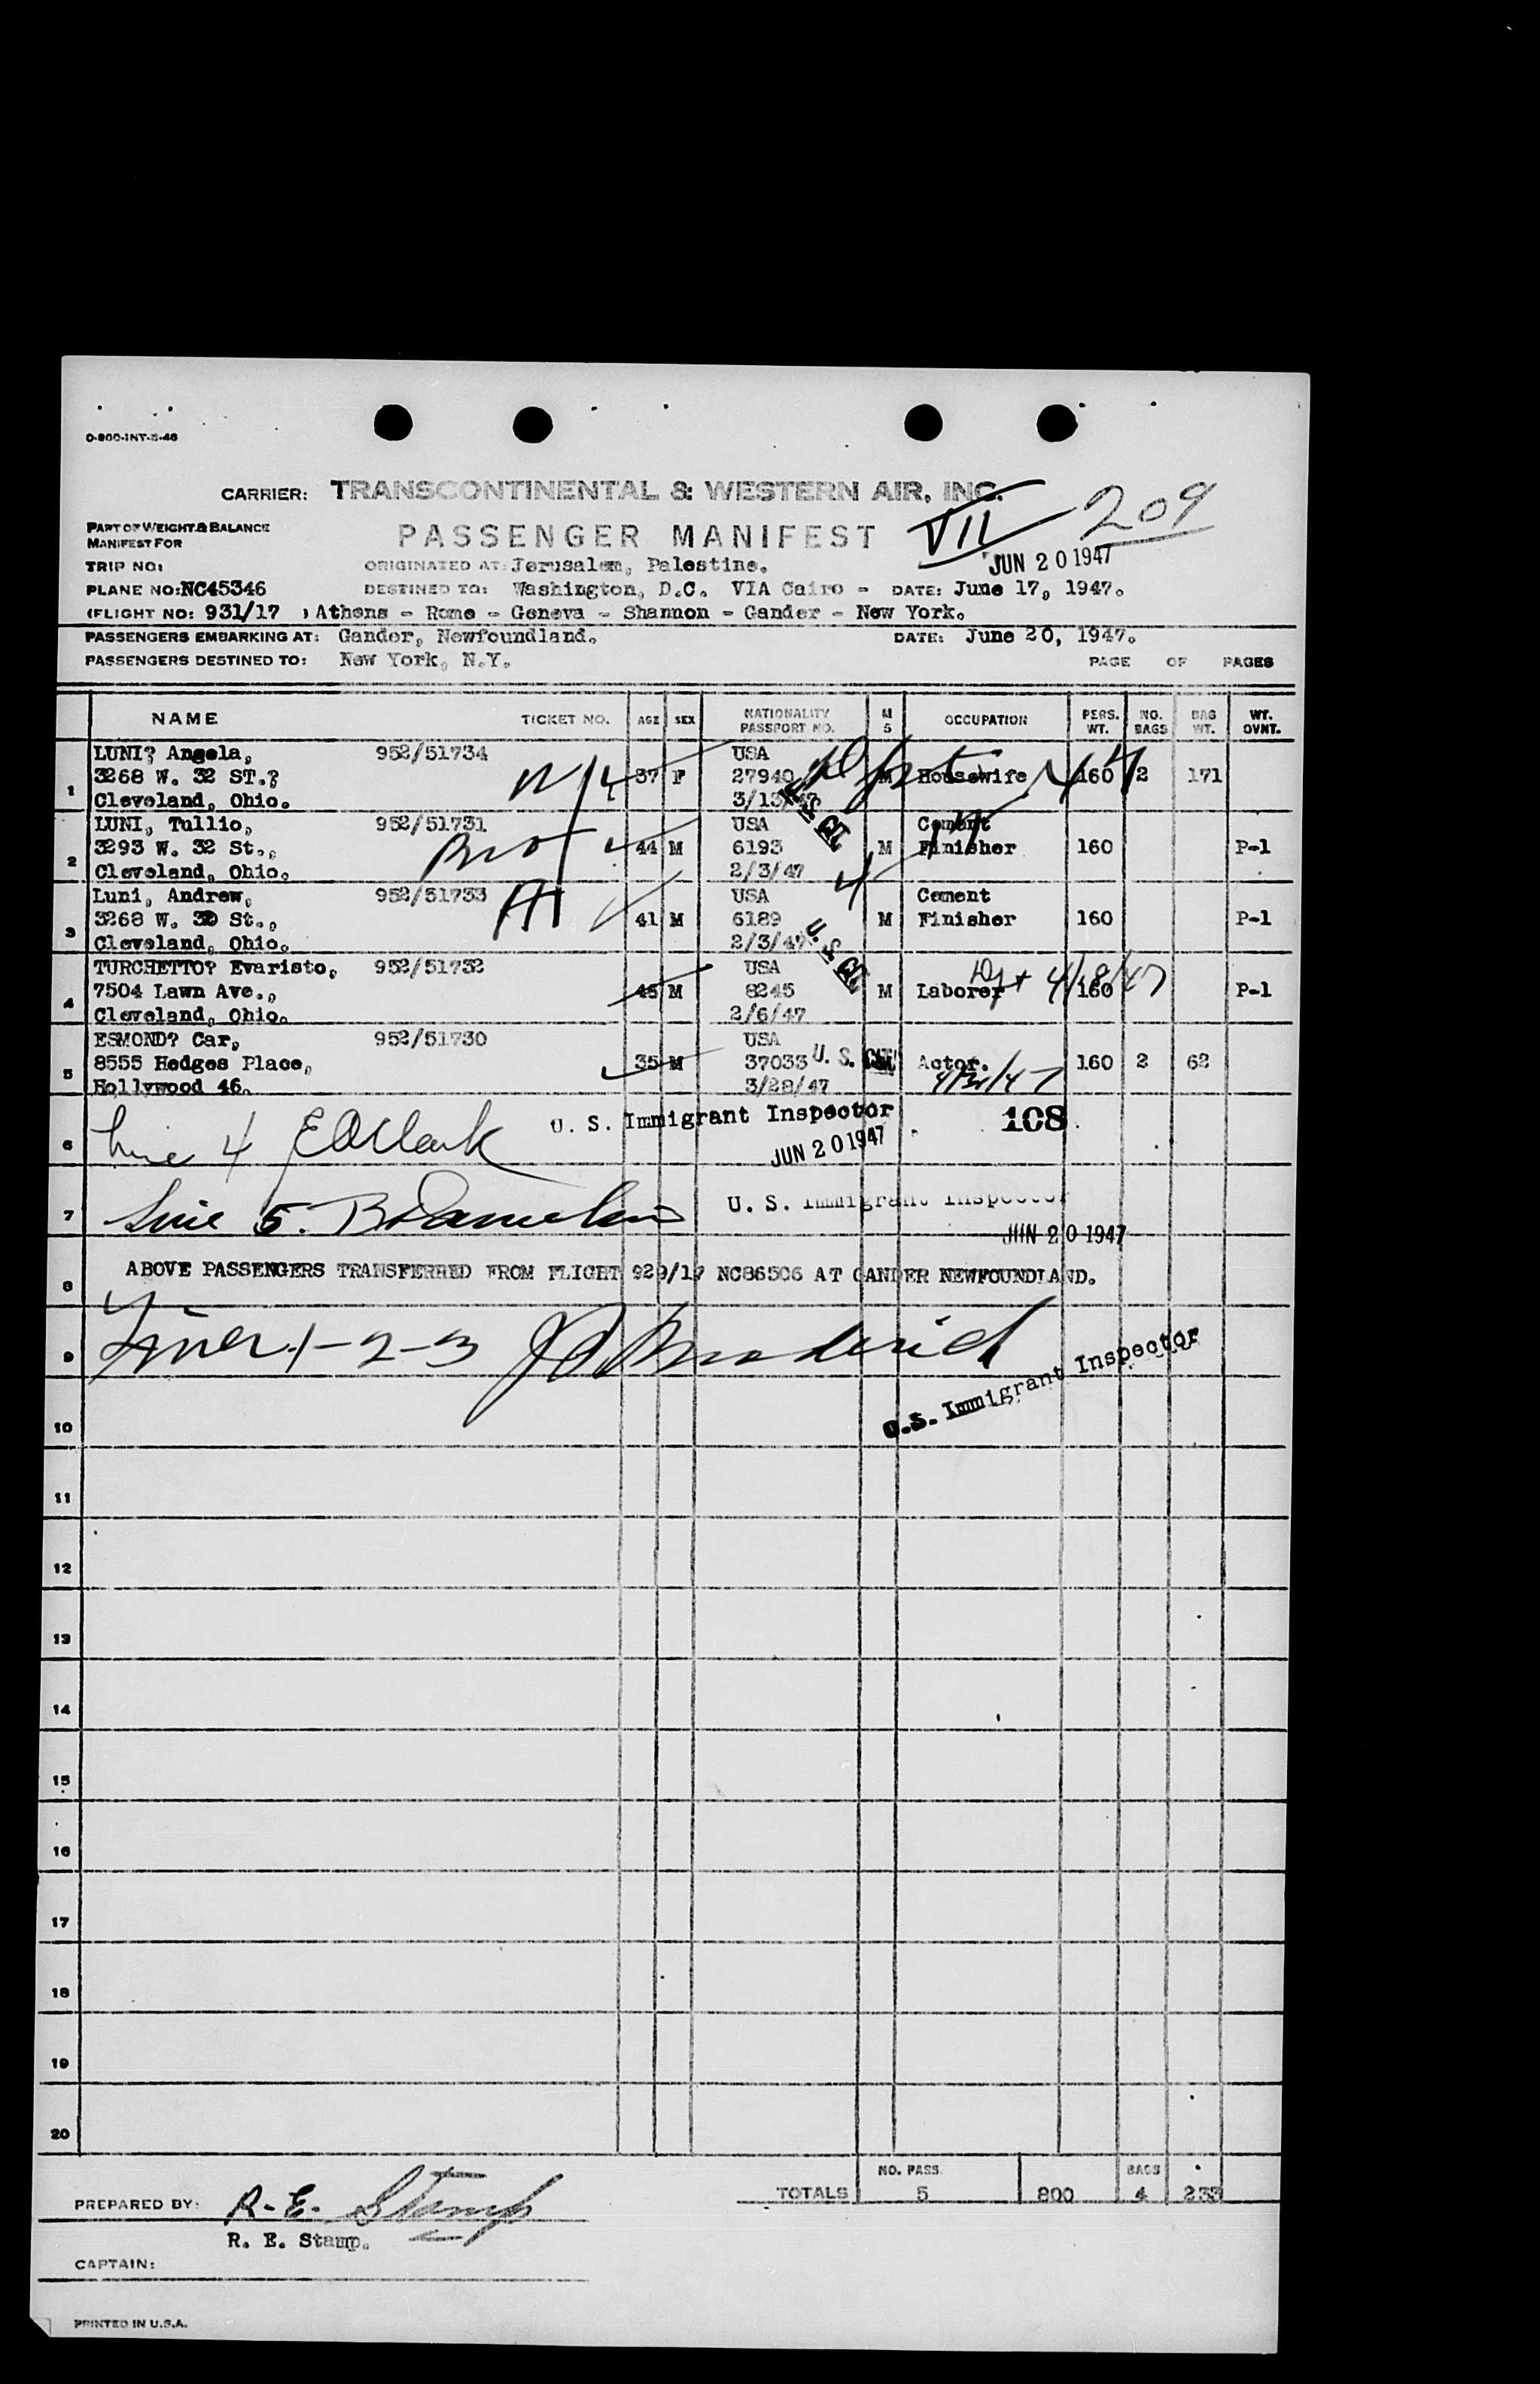 O-800-INT-5-46
CARRIER: TRANSCONTINENTAL & WESTERN AIR, INC.
PART OF WEIGHT & BALANCE
MANIFEST FOR
PASSENGER MANIFEST VII 209
TRIP NO: ORIGINATED AT: Jerusalem, Palestine. JUN 20 1947
PLANE NO: NC45346 DESTINED TO: Washington, D.C. VIA Cairo - DATE: June 17, 1947.
(FLIGHT NO: 931/17 ) Athens - Rome - Geneva - Shannon - Gander - New York.
PASSENGERS EMBARKING AT: Gander, Newfoundland. DATE: June 20, 1947.
PASSENGERS DESTINED TO: New York, N.Y. PAGE OF PAGES
NAME TICKET NO. AGE SEX NATIONALITY PASSPORT NO. M S OCCUPATION PERS. WT. NO. BAGS BAG WT. WT. OVNT.
LUNI? Angela, 952/51734 USA
3268 W. 32 ST.? 37 F 27940 M Housewife 160 2 171
1 Cleveland, Ohio. 3/13/47
U. S. Cit.
LUNI, Tullio, 952/51731 USA Cement
3293 W. 32 St., 44 M 6193 M Finisher 160 P-1
2 Cleveland, Ohio. 2/3/47
Luni, Andrew, 952/51733 USA Cement
3268 W. 32 St., 41 M 6189 M Finisher 160 P-1
3 Cleveland, Ohio. 2/3/47
U. S. Cit.
TURCHETTO? Evaristo, 952/51732 USA Dpt 4/18/47
7504 Lawn Ave., 45 M 8245 M Laborer 160 P-1
4 Cleveland, Ohio. 2/6/47
ESMOND? Car, 952/51730 USA
8555 Hedges Place, 35 M 37033 U. S. Cit. Actor. 160 2 62
5 Hollywood 46. 3/28/47
6 Line 4 U. S. Immigrant Inspector 108
JUN 20 1947
7 Line 5. U. S. Immigrant Inspector
JUN 20 1947
8 ABOVE PASSENGERS TRANSFERRED FROM FLIGHT 929/17 NC86506 AT GANDER NEWFOUNDLAND.
9 Lines 1-2-3
U.S. Immigrant Inspector
10
11
12
13
14
15
16
17
18
19
20
NO. PASS. BAGS
TOTALS 5 800 4 233
PREPARED BY: R. E. Stamp
R. E. Stamp.
CAPTAIN:
PRINTED IN U.S.A.